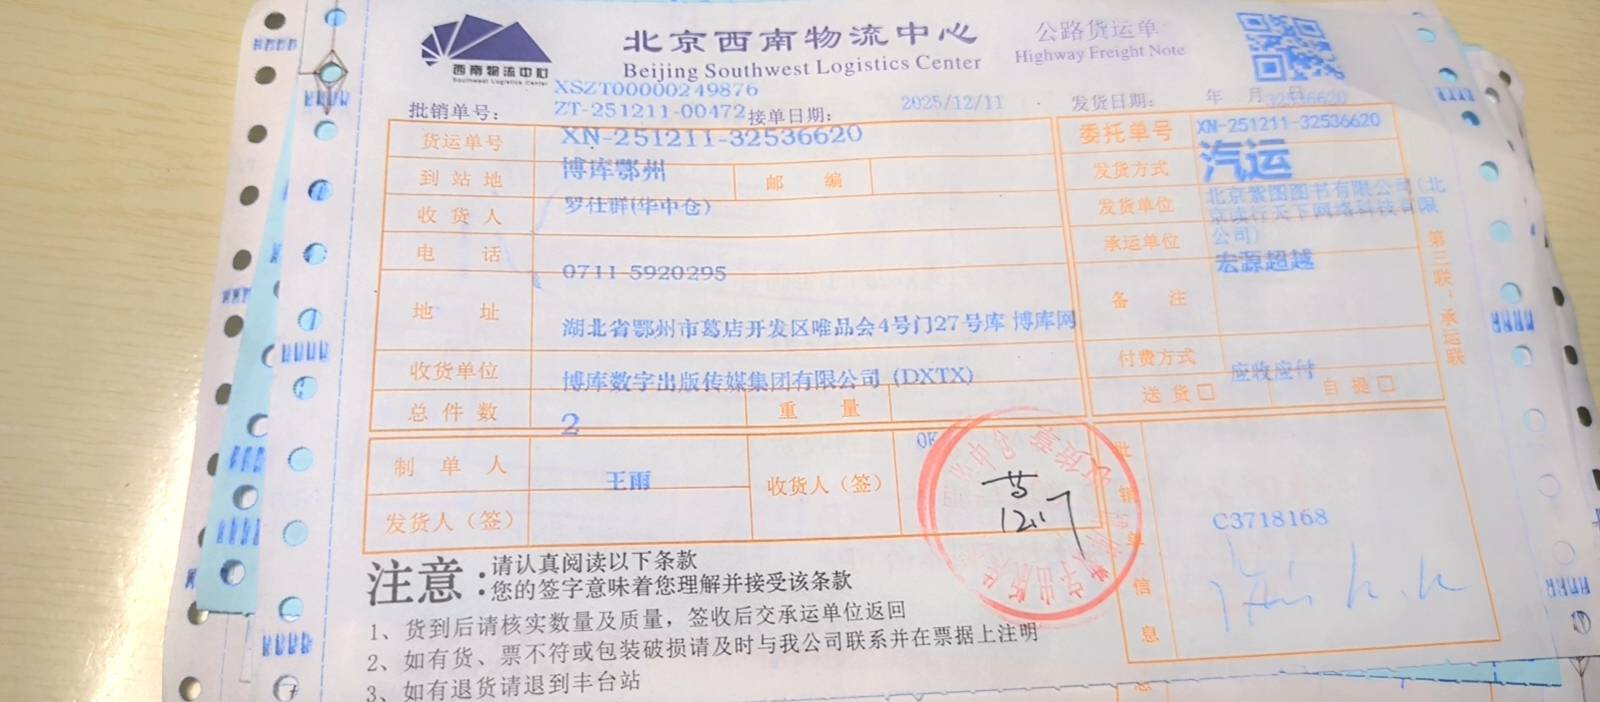 西南物流中心
Southwest Logistics Center
北京西南物流中心
Beijing Southwest Logistics Center
公路货运单
Highway Freight Note
XSZT00000249876
批销单号: ZT-251211-00472 接单日期: 2025/12/11 发货日期: 年 月 日
32536620
货运单号 XN-251211-32536620 委托单号 XN-251211-32536620
到站地 博库鄂州 邮编 发货方式 汽运
收货人 罗仕群(华中仓) 发货单位 北京紫图图书有限公司(北
京读行天下网络科技有限
公司)
电话 0711-5920295 承运单位 宏源超越
地址 湖北省鄂州市葛店开发区唯品会4号门27号库 博库网 备注
收货单位 博库数字出版传媒集团有限公司 (DXTX) 付费方式 应收应付
总件数 2 重量 送货□ 自提□
制单人 王雨 收货人（签） 批销单信息
发货人（签） 12.17 C3718168
第三联:承运联
注意: 请认真阅读以下条款
您的签字意味着您理解并接受该条款
1、货到后请核实数量及质量，签收后交承运单位返回
2、如有货、票不符或包装破损请及时与我公司联系并在票据上注明
3、如有退货请退到丰台站